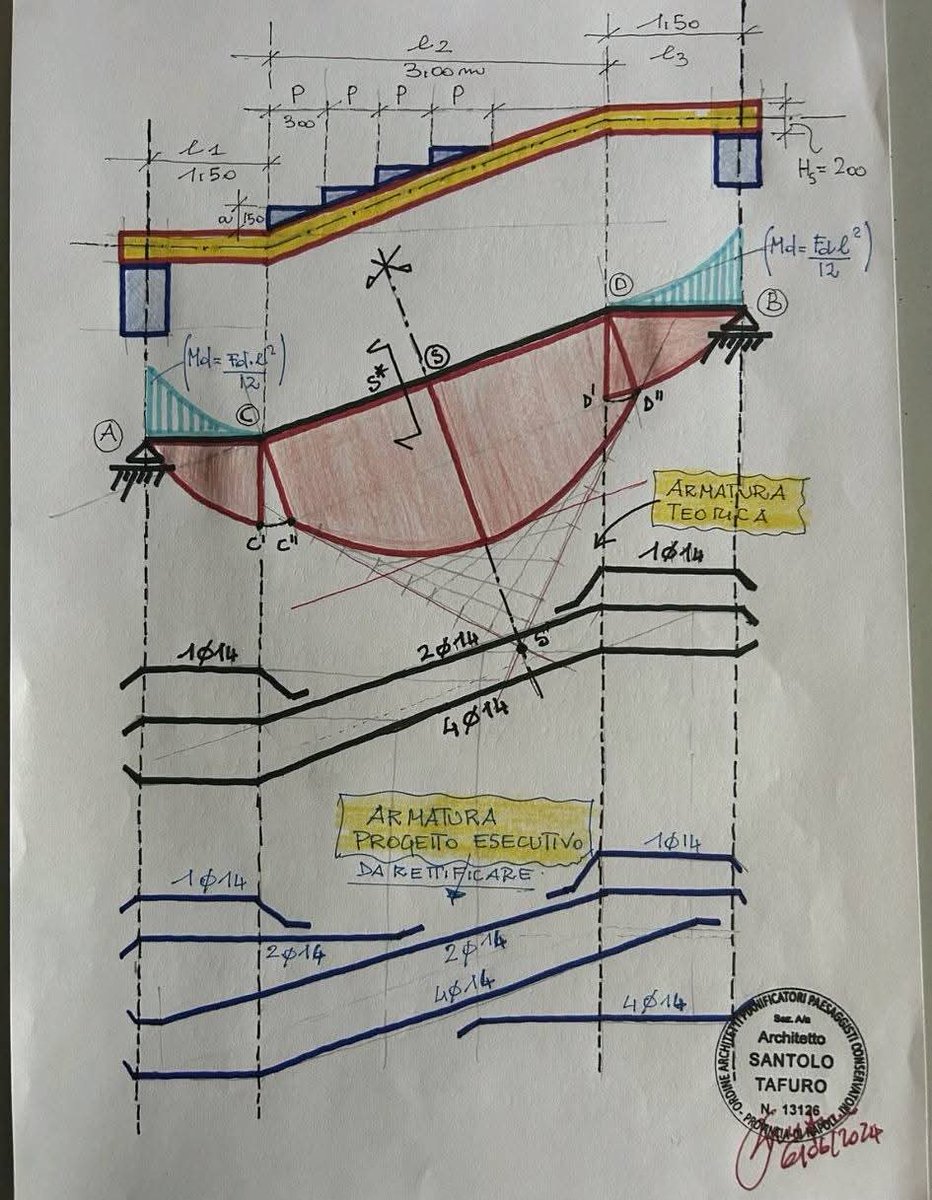 1,50
l2
3,00 m
l3
P P P P
300
l1
1,50
a 150
Hs = 200
(Md = Fd·l²/12)
D
B
(Md = Fd·l²/12)
S
S*
C
A
D' D"
C' C"
ARMATURA
TEORICA
1Ø14
S'
2Ø14
1Ø14
4Ø14
ARMATURA
PROGETTO ESECUTIVO
DA RETTIFICARE
1Ø14
1Ø14
2Ø14
2Ø14
4Ø14
4Ø14
ORDINE ARCHITETTI PIANIFICATORI PAESAGGISTI CONSERVATORI
Sez. A/a
Architetto
SANTOLO
TAFURO
N. 13126
PROVINCIA DI NAPOLI
6/06/2024